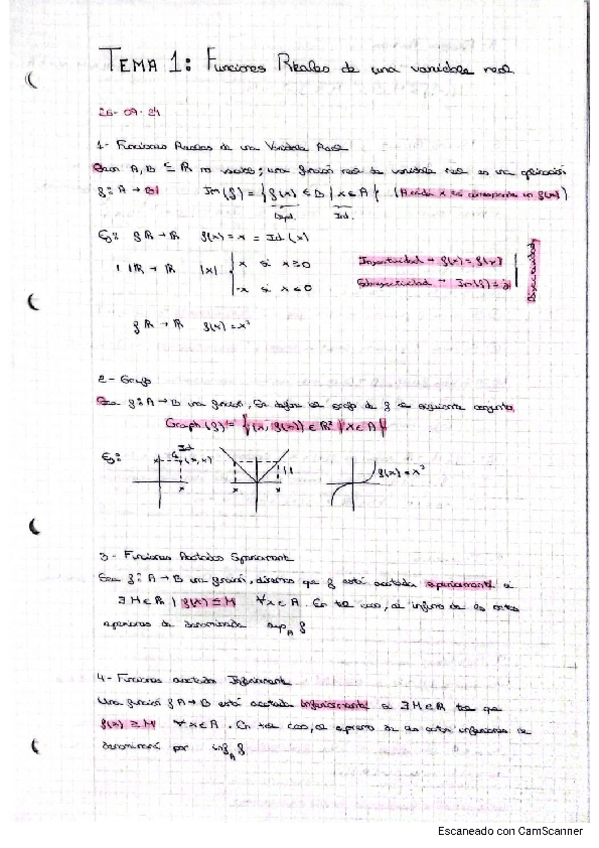 TEMA 1: Funciones Reales de una variable real
26-09-24
1- Funciones Reales de una Variable Real
Sean A, B ⊆ ℝ no vacíos; una función real de variable real es una aplicación
f: A → B Im(f) = {f(x) ∈ B | x ∈ A} (A cada x le corresponde un f(x))
Dpd. Ind.
Ej: f ℝ → ℝ f(x) = x = Id(x)
| | ℝ → ℝ |x| { x si x ≥ 0
-x si x ≤ 0
Inyectividad → f(x) = f(y)
Sobreyectividad → Im(f) =
Biyectividad
f ℝ → ℝ f(x) = x³
2- Grafo
Sea f: A → B una función, Se define el grafo de f el siguiente conjunto
Graph(f) = {(x, f(x)) ∈ ℝ² | x ∈ A}
Ej: Id (x, x) x | | f(x) = x³
3- Funciones Acotadas Superiormente
Sea f: A → B una función, diremos que f está acotada superiormente si
∃ M ∈ ℝ | f(x) ≤ M ∀x ∈ A. En tal caso, al ínfimo de las cotas
superiores se denominada sup_A f
4- Funciones acotadas Inferiormente
Una función f A → B está acotada inferiormente si ∃ M ∈ ℝ tal que
f(x) ≥ M ∀x ∈ A. En tal caso, al supremo de las cotas inferiores se
denominará por inf_A f.
Escaneado con CamScanner